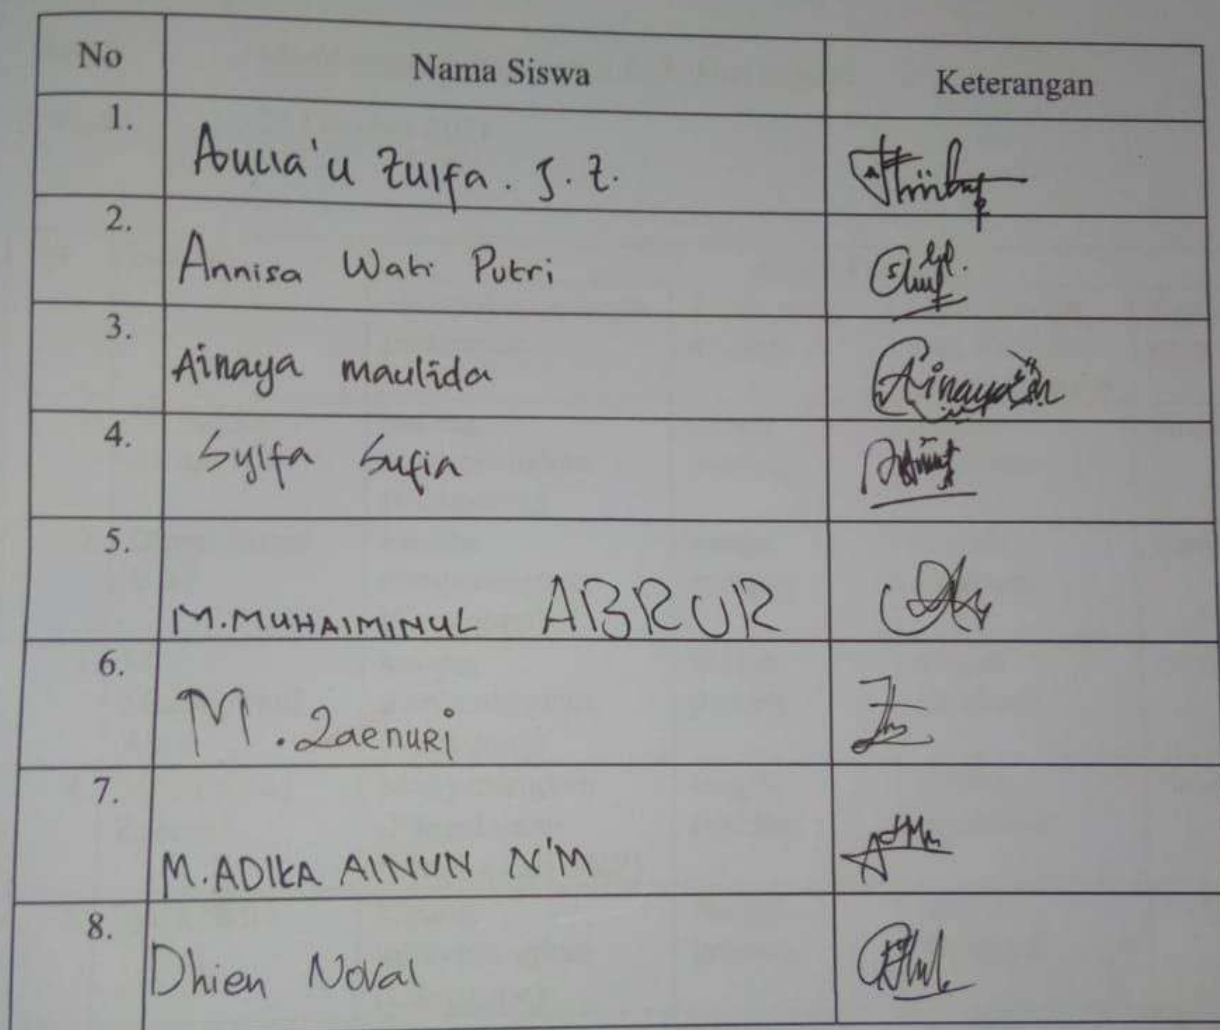 No Nama Siswa Keterangan
1. Aulia'u Zulfa. S. Z.
2. Annisa Wati Putri
3. Ainaya maulida Ainaya
4. Sylfa Sufia
5. M. MUHAIMINUL ABRUR
6. M. Zaenuri
7. M. ADIKA AINUN N'M
8. Dhien Noval